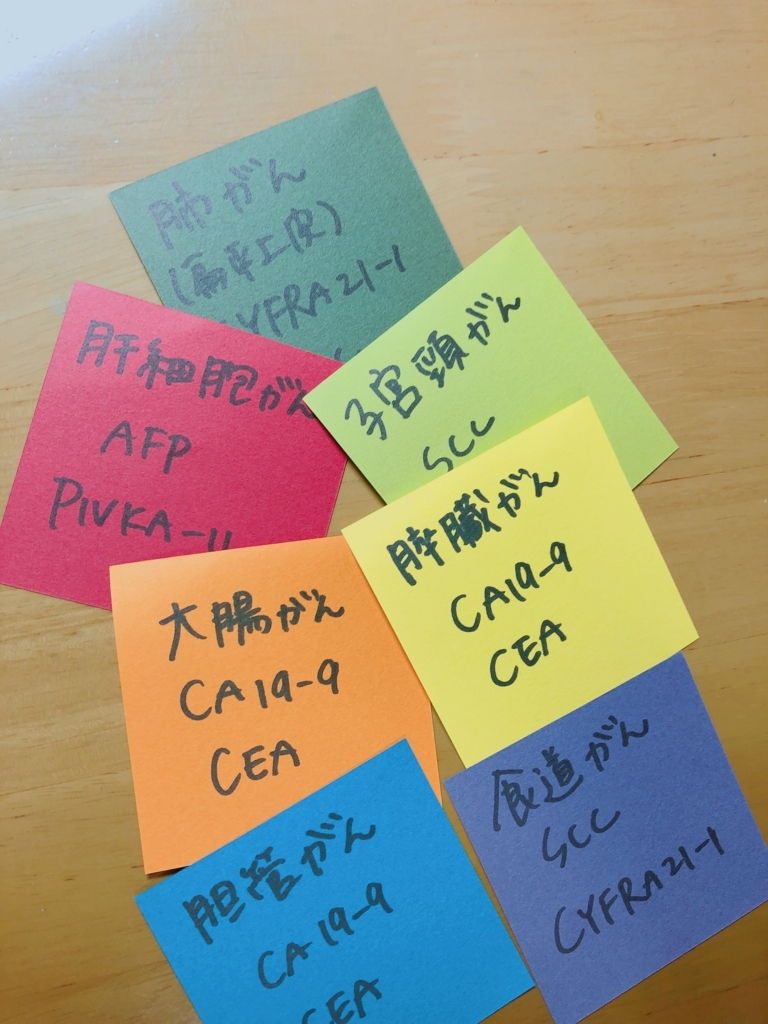 肺がん
(扁平上皮)
CYFRA 21-1
肝細胞がん
AFP
PIVKA-II
子宮頸がん
SCC
膵臓がん
CA19-9
CEA
大腸がん
CA19-9
CEA
食道がん
SCC
CYFRA21-1
胆管がん
CA19-9
CEA